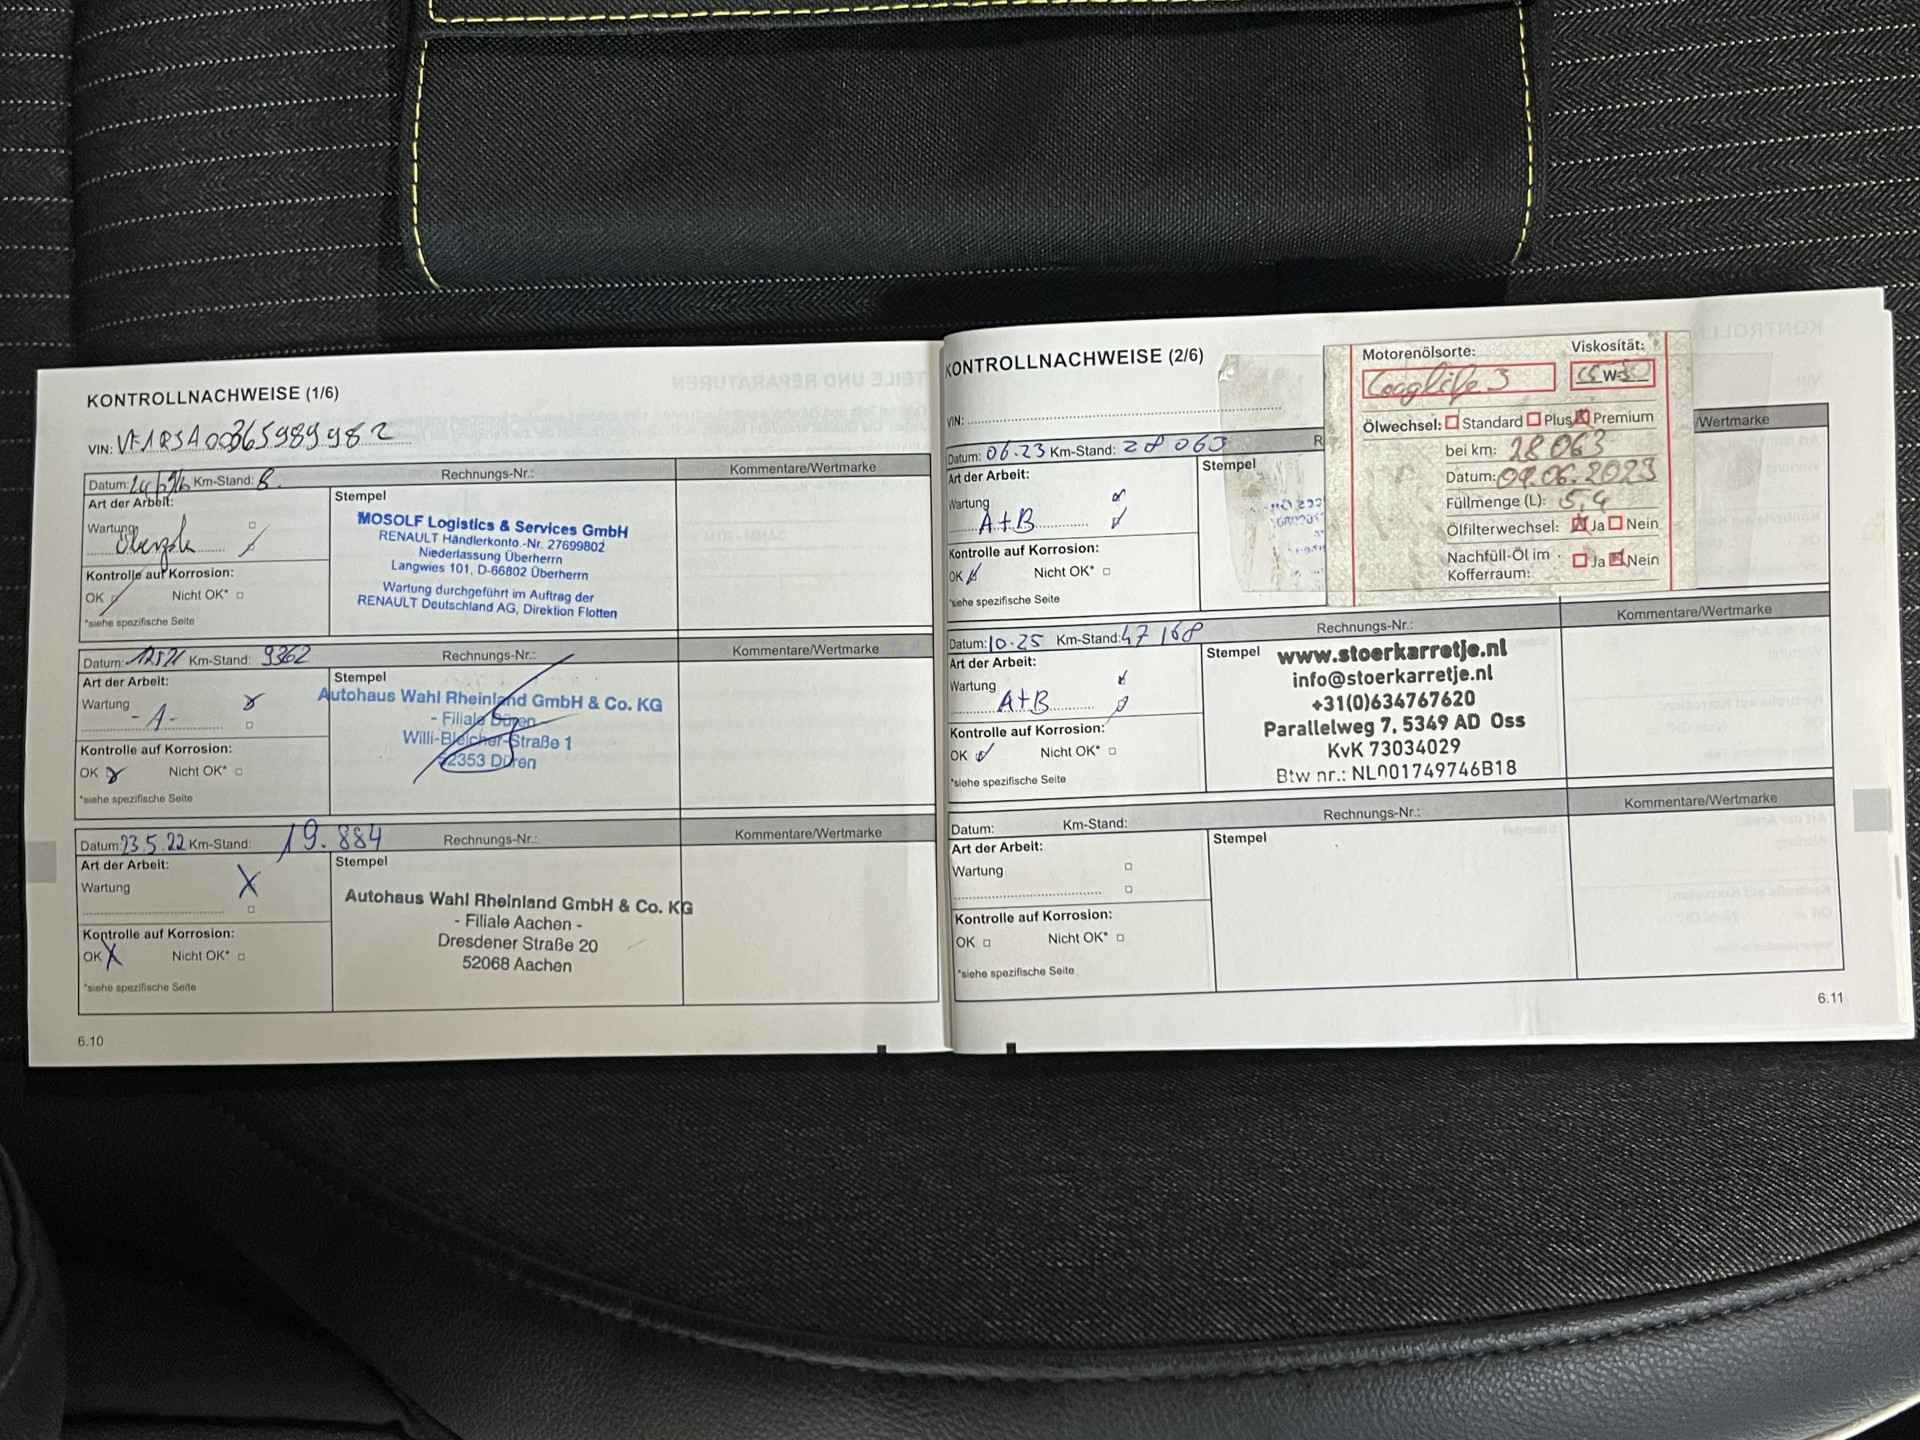 KONTROLLNACHWEISE (1/6)
VIN: VF1RJA00365989982
Datum: Km-Stand: 8 Rechnungs-Nr.: Kommentare/Wertmarke
Art der Arbeit:
Wartung
Stempel
MOSOLF Logistics & Services GmbH
RENAULT Händlerkonto -Nr. 27699802
Niederlassung Überherrn
Langwies 101, D-66802 Überherrn
Wartung durchgeführt im Auftrag der
RENAULT Deutschland AG, Direktion Flotten
Kontrolle auf Korrosion:
OK Nicht OK*
*siehe spezifische Seite
Datum: Km-Stand: 9362 Rechnungs-Nr.: Kommentare/Wertmarke
Art der Arbeit:
Wartung
- A -
Stempel
Autohaus Wahl Rheinland GmbH & Co. KG
- Filiale Düren -
Willi-Bleicher-Straße 1
52353 Düren
Kontrolle auf Korrosion:
OK Nicht OK*
*siehe spezifische Seite
Datum: 23.5.22 Km-Stand: 19.884 Rechnungs-Nr.: Kommentare/Wertmarke
Art der Arbeit:
Wartung X
Stempel
Autohaus Wahl Rheinland GmbH & Co. KG
- Filiale Aachen -
Dresdener Straße 20
52068 Aachen
Kontrolle auf Korrosion:
OK X Nicht OK*
*siehe spezifische Seite
6.10
KONTROLLNACHWEISE (2/6)
VIN:
Datum: 06.23 Km-Stand: 28 063
/Wertmarke
Art der Arbeit:
Wartung
A+B
Stempel
Kontrolle auf Korrosion:
OK Nicht OK*
*siehe spezifische Seite
Motorenölsorte: Viskosität:
Longlife 3 W
Ölwechsel: Standard Plus Premium
bei km: 28 063
Datum: 09.06.2023
Füllmenge (L): 5,4
Ölfilterwechsel: Ja Nein
Nachfüll-Öl im
Kofferraum: Ja Nein
Datum: 10.25 Km-Stand: 47 168 Rechnungs-Nr.: Kommentare/Wertmarke
Art der Arbeit:
Wartung
A+B
Stempel
www.stoerkarretje.nl
info@stoerkarretje.nl
+31(0)634767620
Parallelweg 7, 5349 AD Oss
KvK 73034029
Btw nr.: NL001749746B18
Kontrolle auf Korrosion:
OK Nicht OK*
*siehe spezifische Seite
Datum: Km-Stand: Rechnungs-Nr.: Kommentare/Wertmarke
Art der Arbeit:
Wartung
Stempel
Kontrolle auf Korrosion:
OK Nicht OK*
*siehe spezifische Seite
6.11